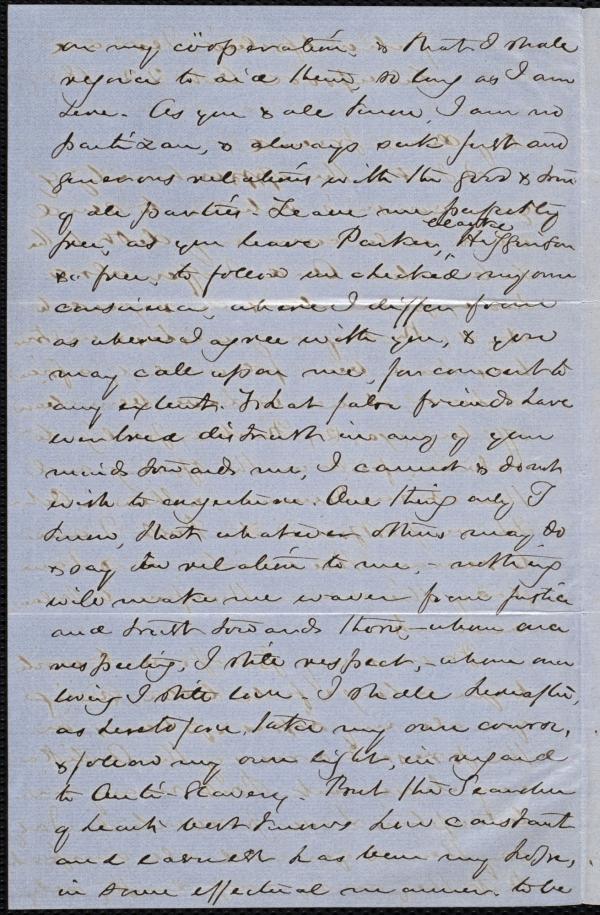 on my coöperation, & that I shall
rejoice to aid them, so long as I am
here. As you & all know, I am no
partizan, & always seek just and
generous relations with the good & true
of all parties. Leave me perfectly
free, as you leave Parker, Clarke Higginson
& a. free, to follow unchecked my own
conscience, where I differ from
as where I agree with you, & you
may call upon me, for concert to
any extent. What false friends have
ever bred distrust in any of your
minds towards me, I cannot & do not
wish to conjecture. One thing only I
know, that whatever others may do
& say in relation to me, – nothing
will make me waver from justice
and trust towards those, – whom once
respecting, I still respect, – whom once
loving I still love. I shall hereafter,
as heretofore, take my own course,
& follow my own light, in regard
to Anti-Slavery. But the Searcher
of hearts best knows how constant
and earnest has been my hope,
in some effectual manner, to be